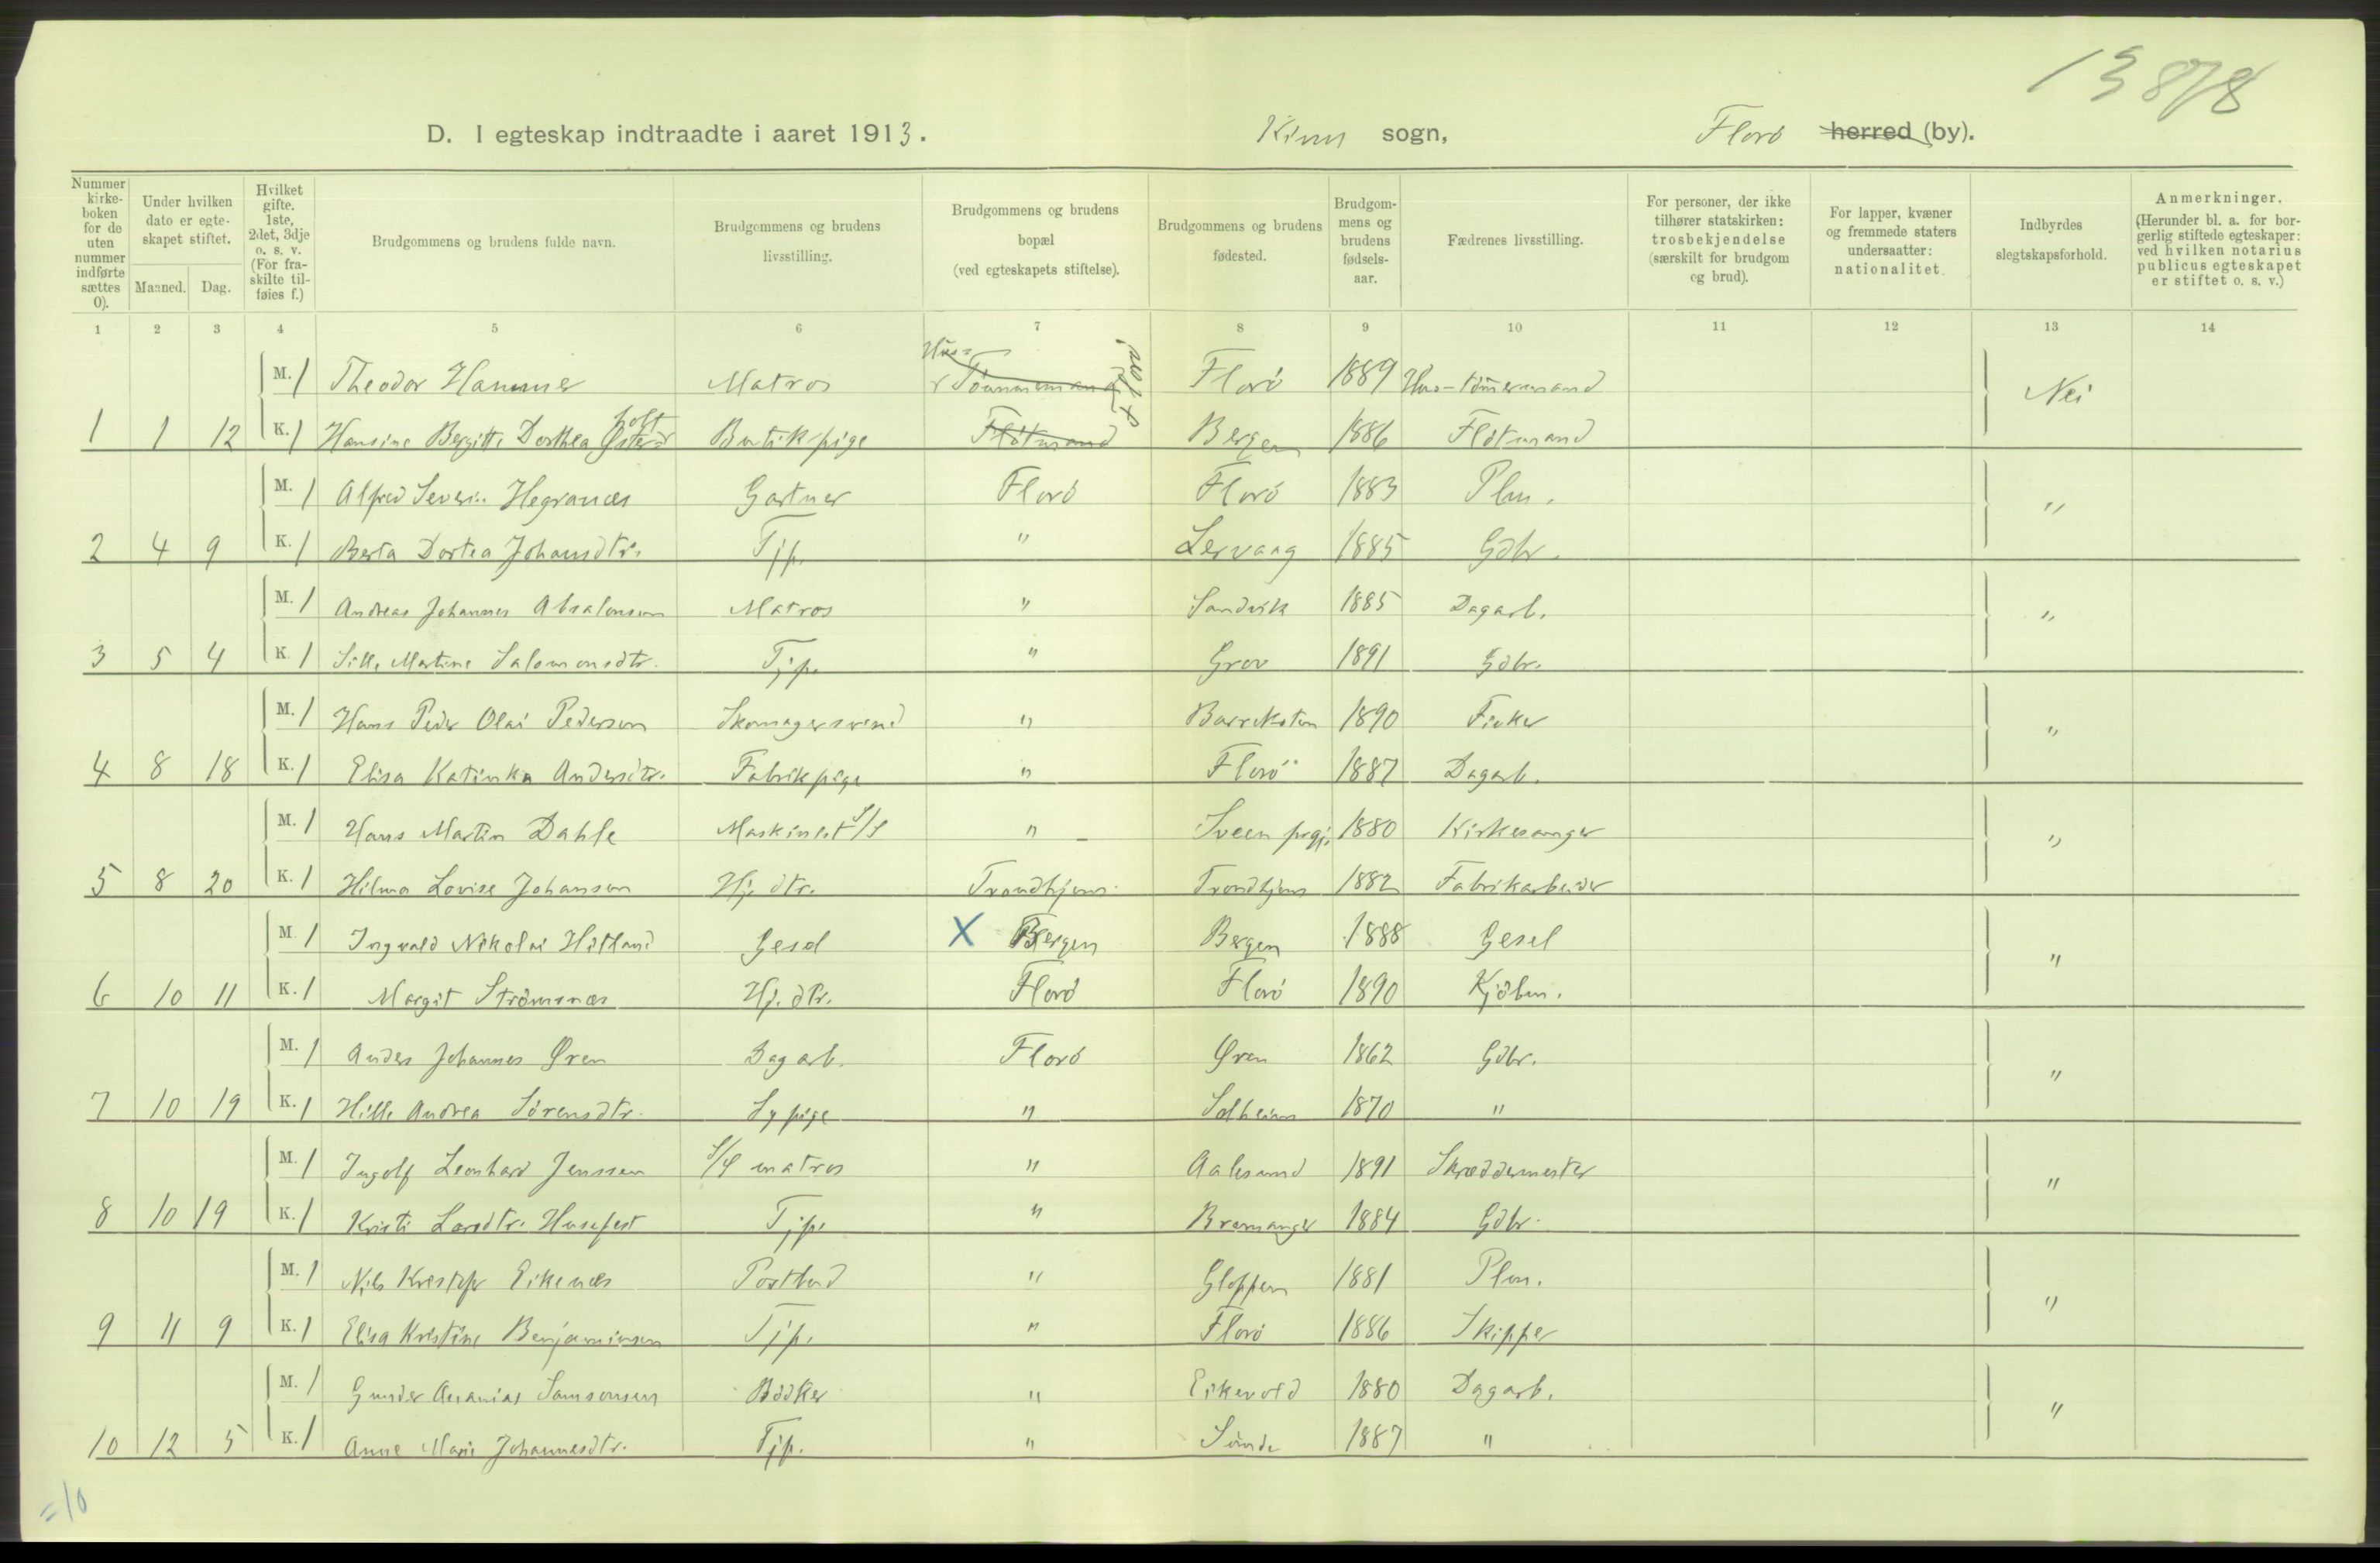 13 878
D. I egteskap indtraadte i aaret 1913. Kinn sogn, Florö herred (by).
Nummer kirke- boken for de uten nummer indførte sættes 0). | Under hvilken dato er egte- skapet stiftet. Maaned. Dag. | Hvilket gifte. 1ste, 2det, 3dje o. s. v. (For fra- skilte til- føies f.) | Brudgommens og brudens fulde navn. | Brudgommens og brudens livsstilling. | Brudgommens og brudens bopæl (ved egteskapets stiftelse). | Brudgommens og brudens fødested. | Brudgom- mens og brudens fødsels- aar. | Fædrenes livsstilling. | For personer, der ikke tilhører statskirken: trosbekjendelse (særskilt for brudgom og brud). | For lapper, kvæner og fremmede staters undersaatter: nationalitet. | Indbyrdes slegtskapsforhold. | Anmerkninger. (Herunder bl. a. for bor- gerlig stiftede egteskaper: ved hvilken notarius publicus egteskapet er stiftet o. s. v.)
1 2 3 4 5 6 7 8 9 10 11 12 13 14
M. 1 Theodor Hammer Matros Hus- Tömmermand Florö Florö 1889 Hus-tömmermand Nei
1 1 12 K. 1 Hansine Bergitte Dorthea Østerholt Butikpige Flötmand Bergen 1886 Flötmand
M. 1 Alfred Severin Hegranæs Gartner Florö Florö 1883 Plm. "
2 4 9 K. 1 Berta Dortea Johansdtr. Tjp. " Lervaag 1885 Gdbr.
M. 1 Andreas Johannes Absalonsen Matros " Sandvik 1885 Dagarb. "
3 5 4 K. 1 Sille Martine Salomonsdtr. Tjp. " Grov 1891 Gdbr.
M. 1 Hans Peder Olai Pedersen Skomagersvend " 1890 Fisker "
4 8 18 K. 1 Elisa Katinka Andersdtr. Fabrikpige " Florö 1887 Dagarb.
M. 1 Hans Martin Dahle Maskinist S/S " Sveen prgj. 1880 Kirkesanger "
5 8 20 K. 1 Hilma Lovise Johansen Hj. dtr. Trondhjem Trondhjem 1882 Fabrikarbeider
M. 1 Ingvald Nikolai Hitland Gesel X Bergen Bergen 1888 Gesel "
6 10 11 K. 1 Margit Strömsnæs Hj. dtr. Florö Florö 1890 Kjöbm.
M. 1 Anders Johannes Øren Dagarb. Florö Øren 1862 Gdbr. "
7 10 19 K. 1 Hille Andrea Sörensdtr. Sypige " Solheim 1870 "
M. 1 Ingolf Leonhard Jenssen S/S matros " Aalesund 1891 Skræddermester "
8 10 19 K. 1 Kristi Larsdtr. Husefest Tjp. " Bremanger 1884 Gdbr.
M. 1 Nils Kristofer Eikenæs Postbud " Gloppen 1881 Plm. "
9 11 9 K. 1 Elisa Kristine Benjaminsen Tjp. " Florö 1886 Skipper
M. 1 Gunder Ananias Samsonsen Bödker " Eikevold 1880 Dagarb. "
10 12 5 K. 1 Anne Marie Johannesdtr. Tjp. " Sunde 1887 "
=10